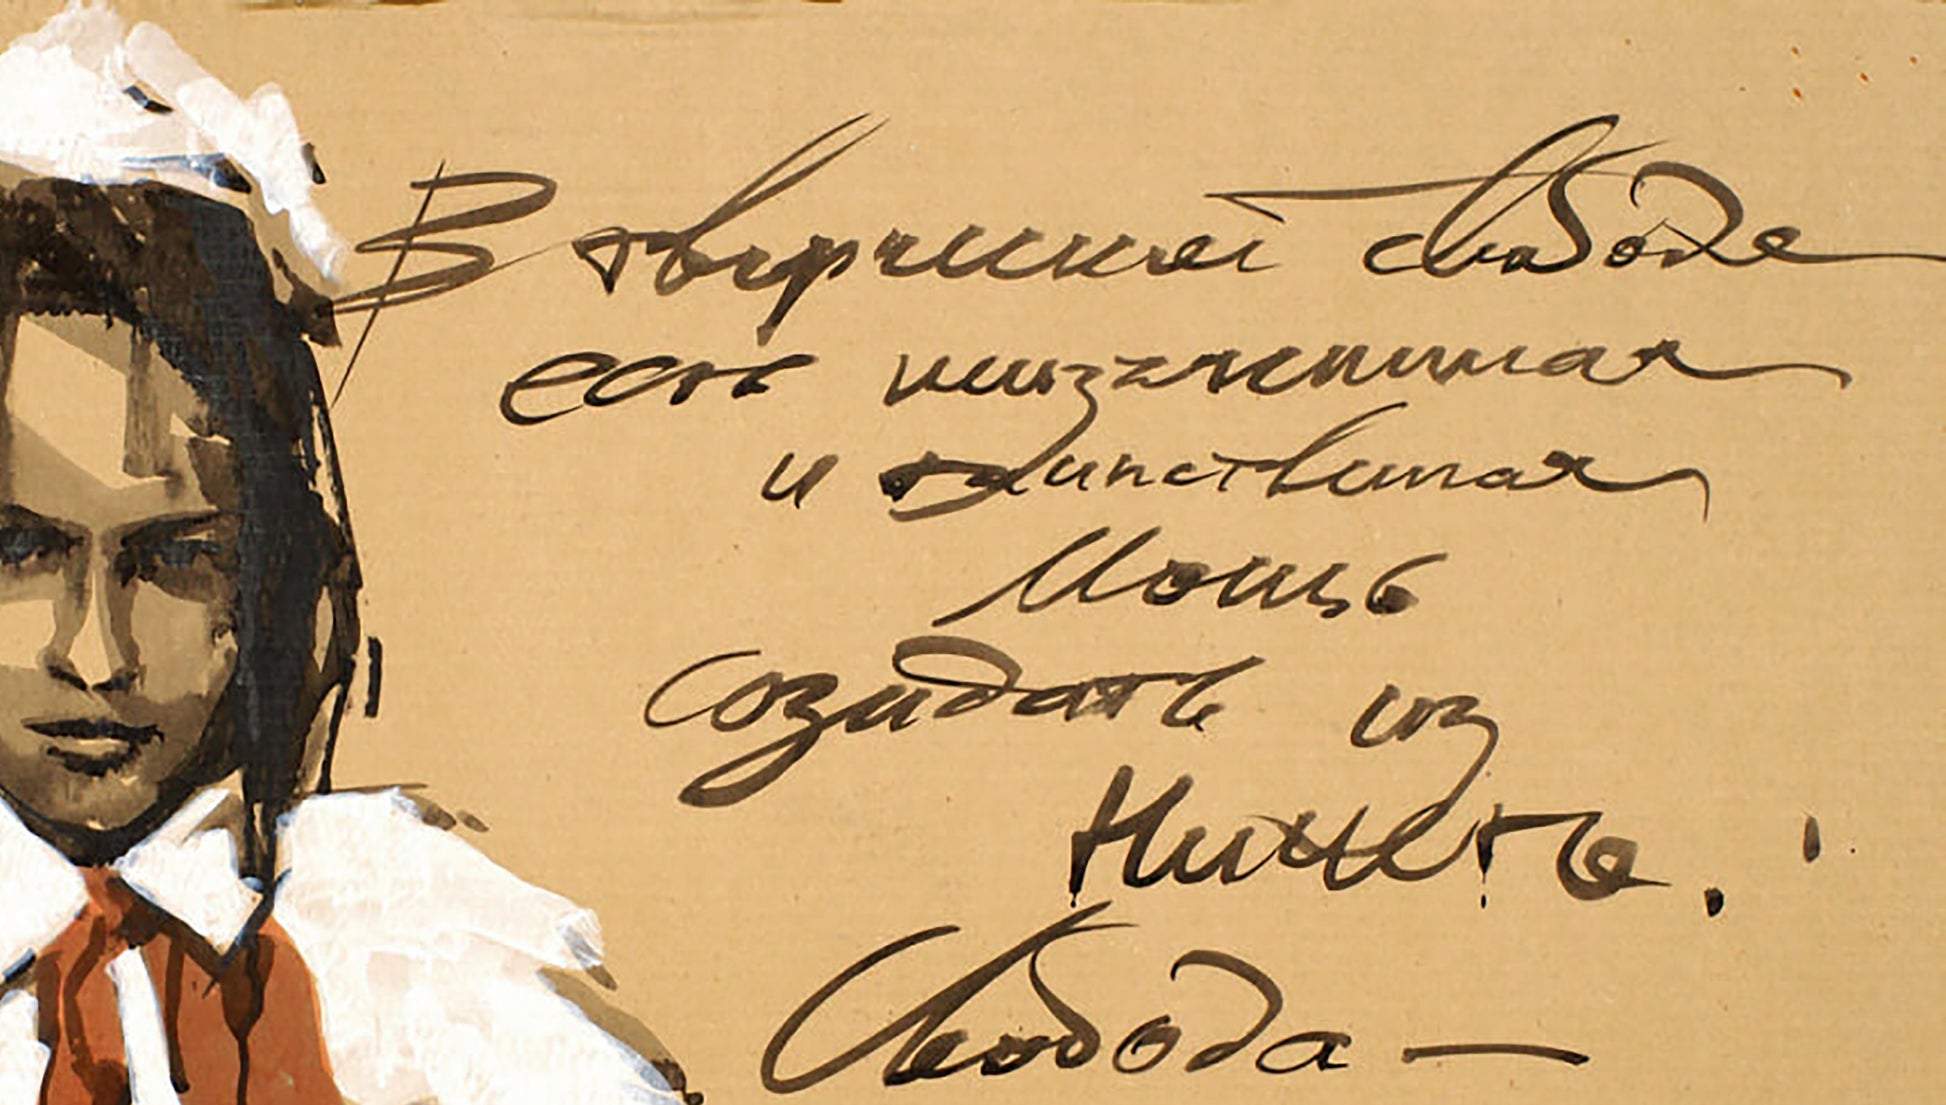 В творческой свободе
есть неизъяснимая
и таинственная
Мощь
созидать из
Ничего.
Свобода —